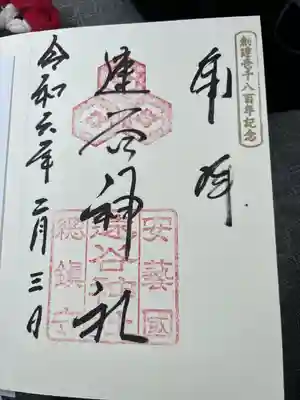 創建壱千八百年記念
奉拝
速谷神社
安藝國
速谷神社
總鎮守
令和六年二月三日